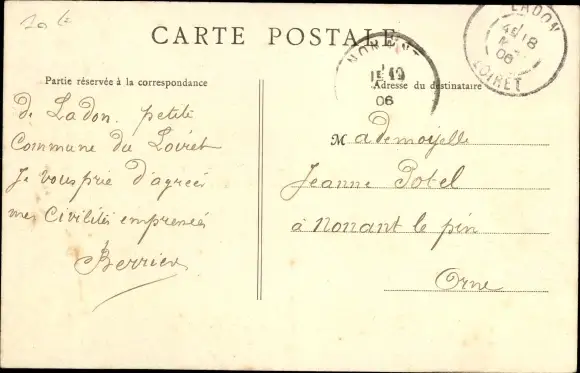 10 c
CARTE POSTALE
LADON
18
06
LOIRET
NONANT
19
06
Partie réservée à la correspondance
Adresse du destinataire
de Ladon. petite
Commune du Loiret
Je vous prie d'agréer
mes Civilités empressées
Berrier
Mademoiselle
Jeanne Potel
à Nonant le pin
Orne